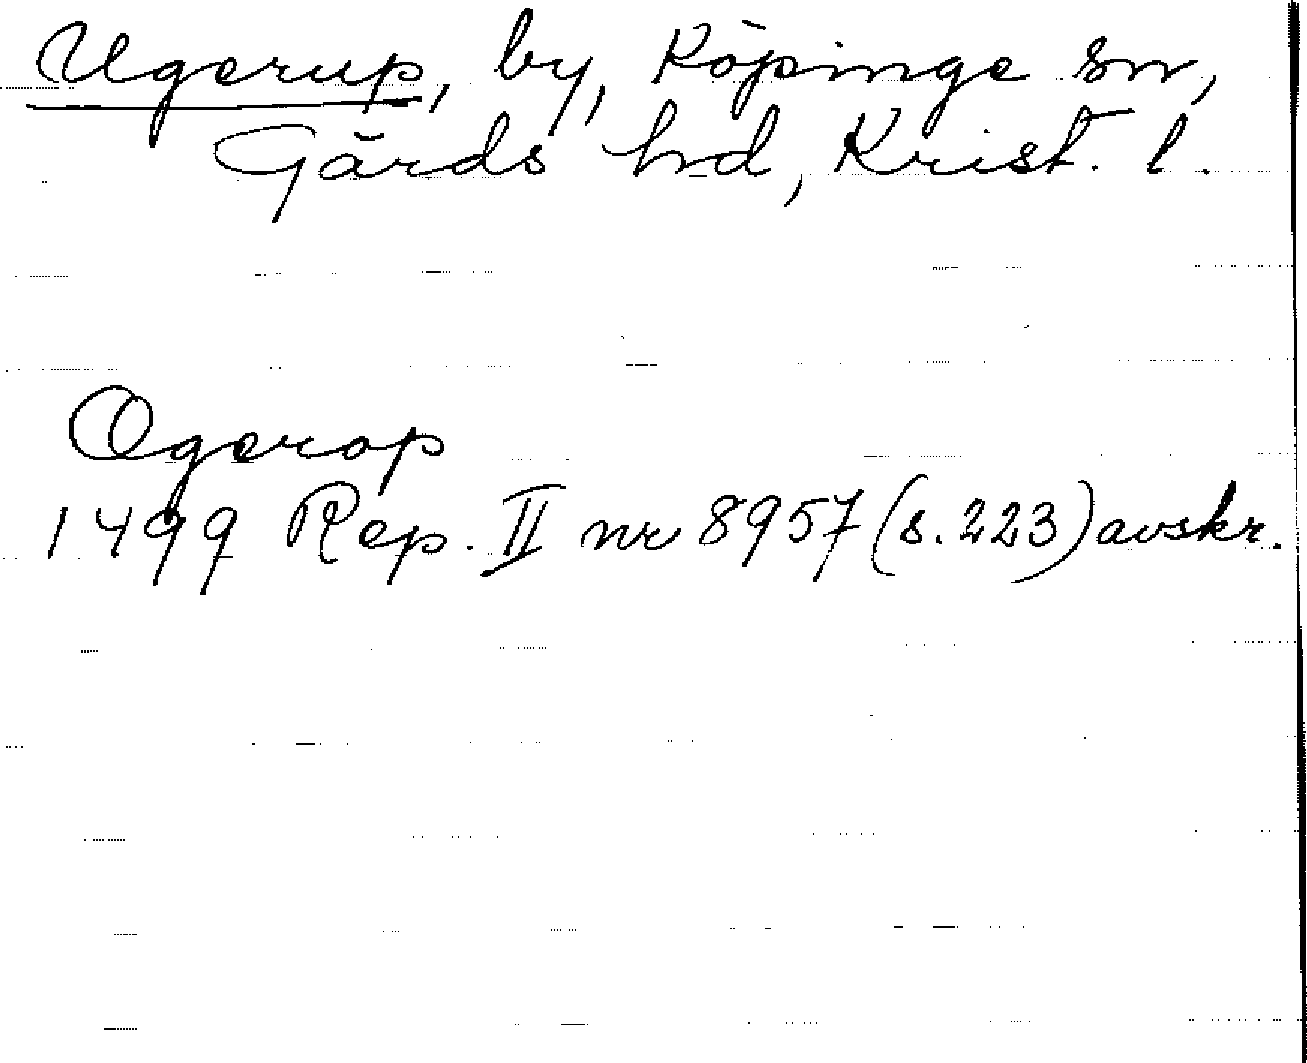 Ugerup, by, Köpinge sn,
Gärds hd, Krist. l.
Ogerop
1499 Rep. II nr 8957 (s. 223) avskr.